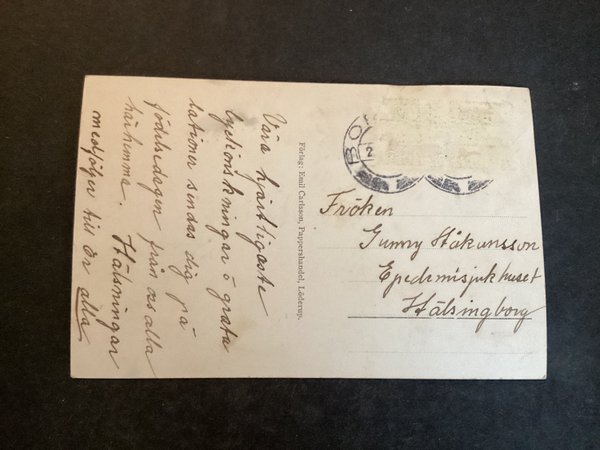 Våra hjärtligaste
lyckönskningar o gratu
lationer sendas dig på
födelsedagen från oss alla
härhemma. Hälsningar
medföljer till Er alla
Förlag: Emil Carlsson, Pappershandel, Löderup.
BO
2
Fröken
Gunny Håkansson
Epidemisjukhuset
Hälsingborg